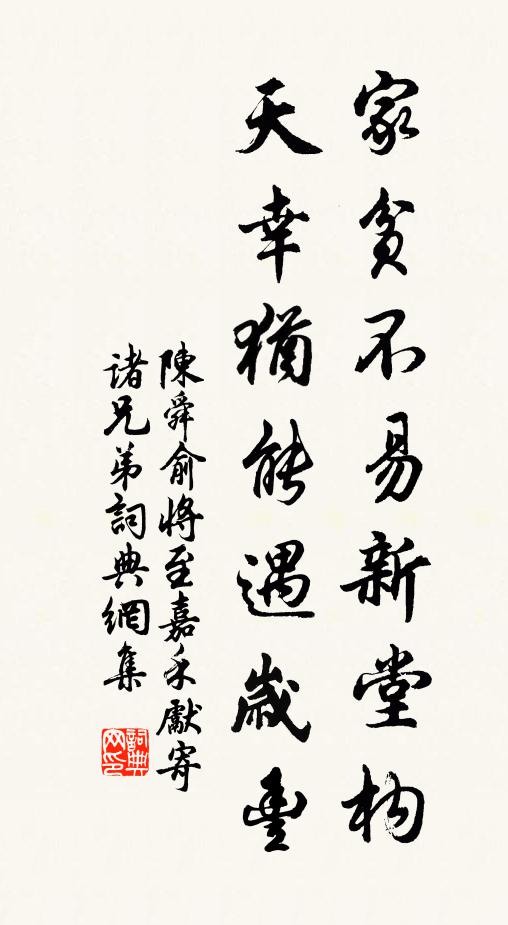 家貧不易新堂构
天幸猶能遇歲豐
陳舜俞將至嘉禾獻寄
诸兄弟詞典網集
詞典网印